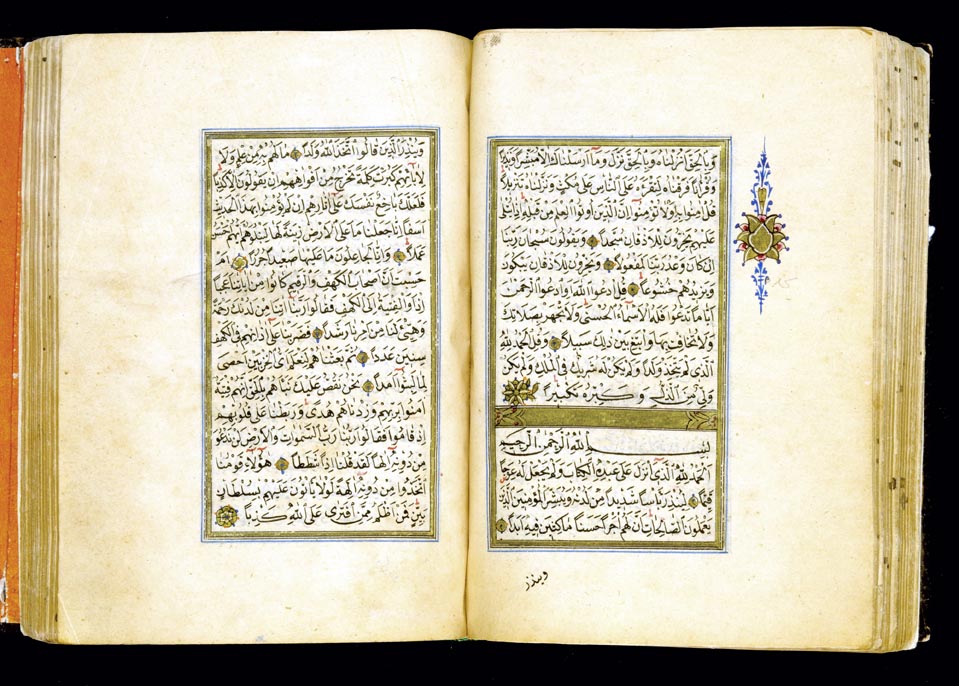 وَبِالْحَقِّ اَنْزَلْنَاهُ وَبِالْحَقِّ نَزَلَ وَمَا اَرْسَلْنَاكَ اِلَّا مُبَشِّرًا وَنَذِيرًا
وَقُرْاٰنًا فَرَقْنَاهُ لِتَقْرَاَهُ عَلَى النَّاسِ عَلٰى مُكْثٍ وَنَزَّلْنَاهُ تَنْزِيلًا
قُلْ اٰمِنُوا بِهِ اَوْ لَا تُؤْمِنُوا اِنَّ الَّذِينَ اُوتُوا الْعِلْمَ مِنْ قَبْلِهِ اِذَا يُتْلٰى
عَلَيْهِمْ يَخِرُّونَ لِلْاَذْقَانِ سُجَّدًا وَيَقُولُونَ سُبْحَانَ رَبِّنَا
اِنْ كَانَ وَعْدُ رَبِّنَا لَمَفْعُولًا وَيَخِرُّونَ لِلْاَذْقَانِ يَبْكُونَ
وَيَزِيدُهُمْ خُشُوعًا قُلِ ادْعُوا اللّٰهَ اَوِ ادْعُوا الرَّحْمٰنَ
اَيًّا مَا تَدْعُوا فَلَهُ الْاَسْمَاءُ الْحُسْنٰى وَلَا تَجْهَرْ بِصَلَاتِكَ
وَلَا تُخَافِتْ بِهَا وَابْتَغِ بَيْنَ ذٰلِكَ سَبِيلًا وَقُلِ الْحَمْدُ لِلّٰهِ
الَّذِي لَمْ يَتَّخِذْ وَلَدًا وَلَمْ يَكُنْ لَهُ شَرِيكٌ فِي الْمُلْكِ وَلَمْ يَكُنْ
وَلِيٌّ مِنَ الذُّلِّ وَكَبِّرْهُ تَكْبِيرًا
بِسْمِ اللّٰهِ الرَّحْمٰنِ الرَّحِيمِ
اَلْحَمْدُ لِلّٰهِ الَّذِي اَنْزَلَ عَلٰى عَبْدِهِ الْكِتَابَ وَلَمْ يَجْعَلْ لَهُ عِوَجًا
قَيِّمًا لِيُنْذِرَ بَاْسًا شَدِيدًا مِنْ لَدُنْهُ وَيُبَشِّرَ الْمُؤْمِنِينَ الَّذِينَ
يَعْمَلُونَ الصَّالِحَاتِ اَنَّ لَهُمْ اَجْرًا حَسَنًا مَاكِثِينَ فِيهِ اَبَدًا
وينذر
وَيُنْذِرَ الَّذِينَ قَالُوا اتَّخَذَ اللّٰهُ وَلَدًا مَا لَهُمْ بِهِ مِنْ عِلْمٍ وَلَا
لِاٰبَائِهِمْ كَبُرَتْ كَلِمَةً تَخْرُجُ مِنْ اَفْوَاهِهِمْ اِنْ يَقُولُونَ اِلَّا كَذِبًا
فَلَعَلَّكَ بَاخِعٌ نَفْسَكَ عَلٰى اٰثَارِهِمْ اِنْ لَمْ يُؤْمِنُوا بِهٰذَا الْحَدِيثِ
اَسَفًا اِنَّا جَعَلْنَا مَا عَلَى الْاَرْضِ زِينَةً لَهَا لِنَبْلُوَهُمْ اَيُّهُمْ اَحْسَنُ
عَمَلًا وَاِنَّا لَجَاعِلُونَ مَا عَلَيْهَا صَعِيدًا جُرُزًا اَمْ
حَسِبْتَ اَنَّ اَصْحَابَ الْكَهْفِ وَالرَّقِيمِ كَانُوا مِنْ اٰيَاتِنَا عَجَبًا
اِذْ اَوَى الْفِتْيَةُ اِلَى الْكَهْفِ فَقَالُوا رَبَّنَا اٰتِنَا مِنْ لَدُنْكَ رَحْمَةً
وَهَيِّئْ لَنَا مِنْ اَمْرِنَا رَشَدًا فَضَرَبْنَا عَلٰى اٰذَانِهِمْ فِي الْكَهْفِ
سِنِينَ عَدَدًا ثُمَّ بَعَثْنَاهُمْ لِنَعْلَمَ اَيُّ الْحِزْبَيْنِ اَحْصٰى
لِمَا لَبِثُوا اَمَدًا نَحْنُ نَقُصُّ عَلَيْكَ نَبَاَهُمْ بِالْحَقِّ اِنَّهُمْ فِتْيَةٌ
اٰمَنُوا بِرَبِّهِمْ وَزِدْنَاهُمْ هُدًى وَرَبَطْنَا عَلٰى قُلُوبِهِمْ
اِذْ قَامُوا فَقَالُوا رَبُّنَا رَبُّ السَّمٰوَاتِ وَالْاَرْضِ لَنْ نَدْعُوَ
مِنْ دُونِهِ اِلٰهًا لَقَدْ قُلْنَا اِذًا شَطَطًا هٰؤُلَاءِ قَوْمُنَا
اتَّخَذُوا مِنْ دُونِهِ اٰلِهَةً لَوْلَا يَاْتُونَ عَلَيْهِمْ بِسُلْطَانٍ
بَيِّنٍ فَمَنْ اَظْلَمُ مِمَّنِ افْتَرٰى عَلَى اللّٰهِ كَذِبًا